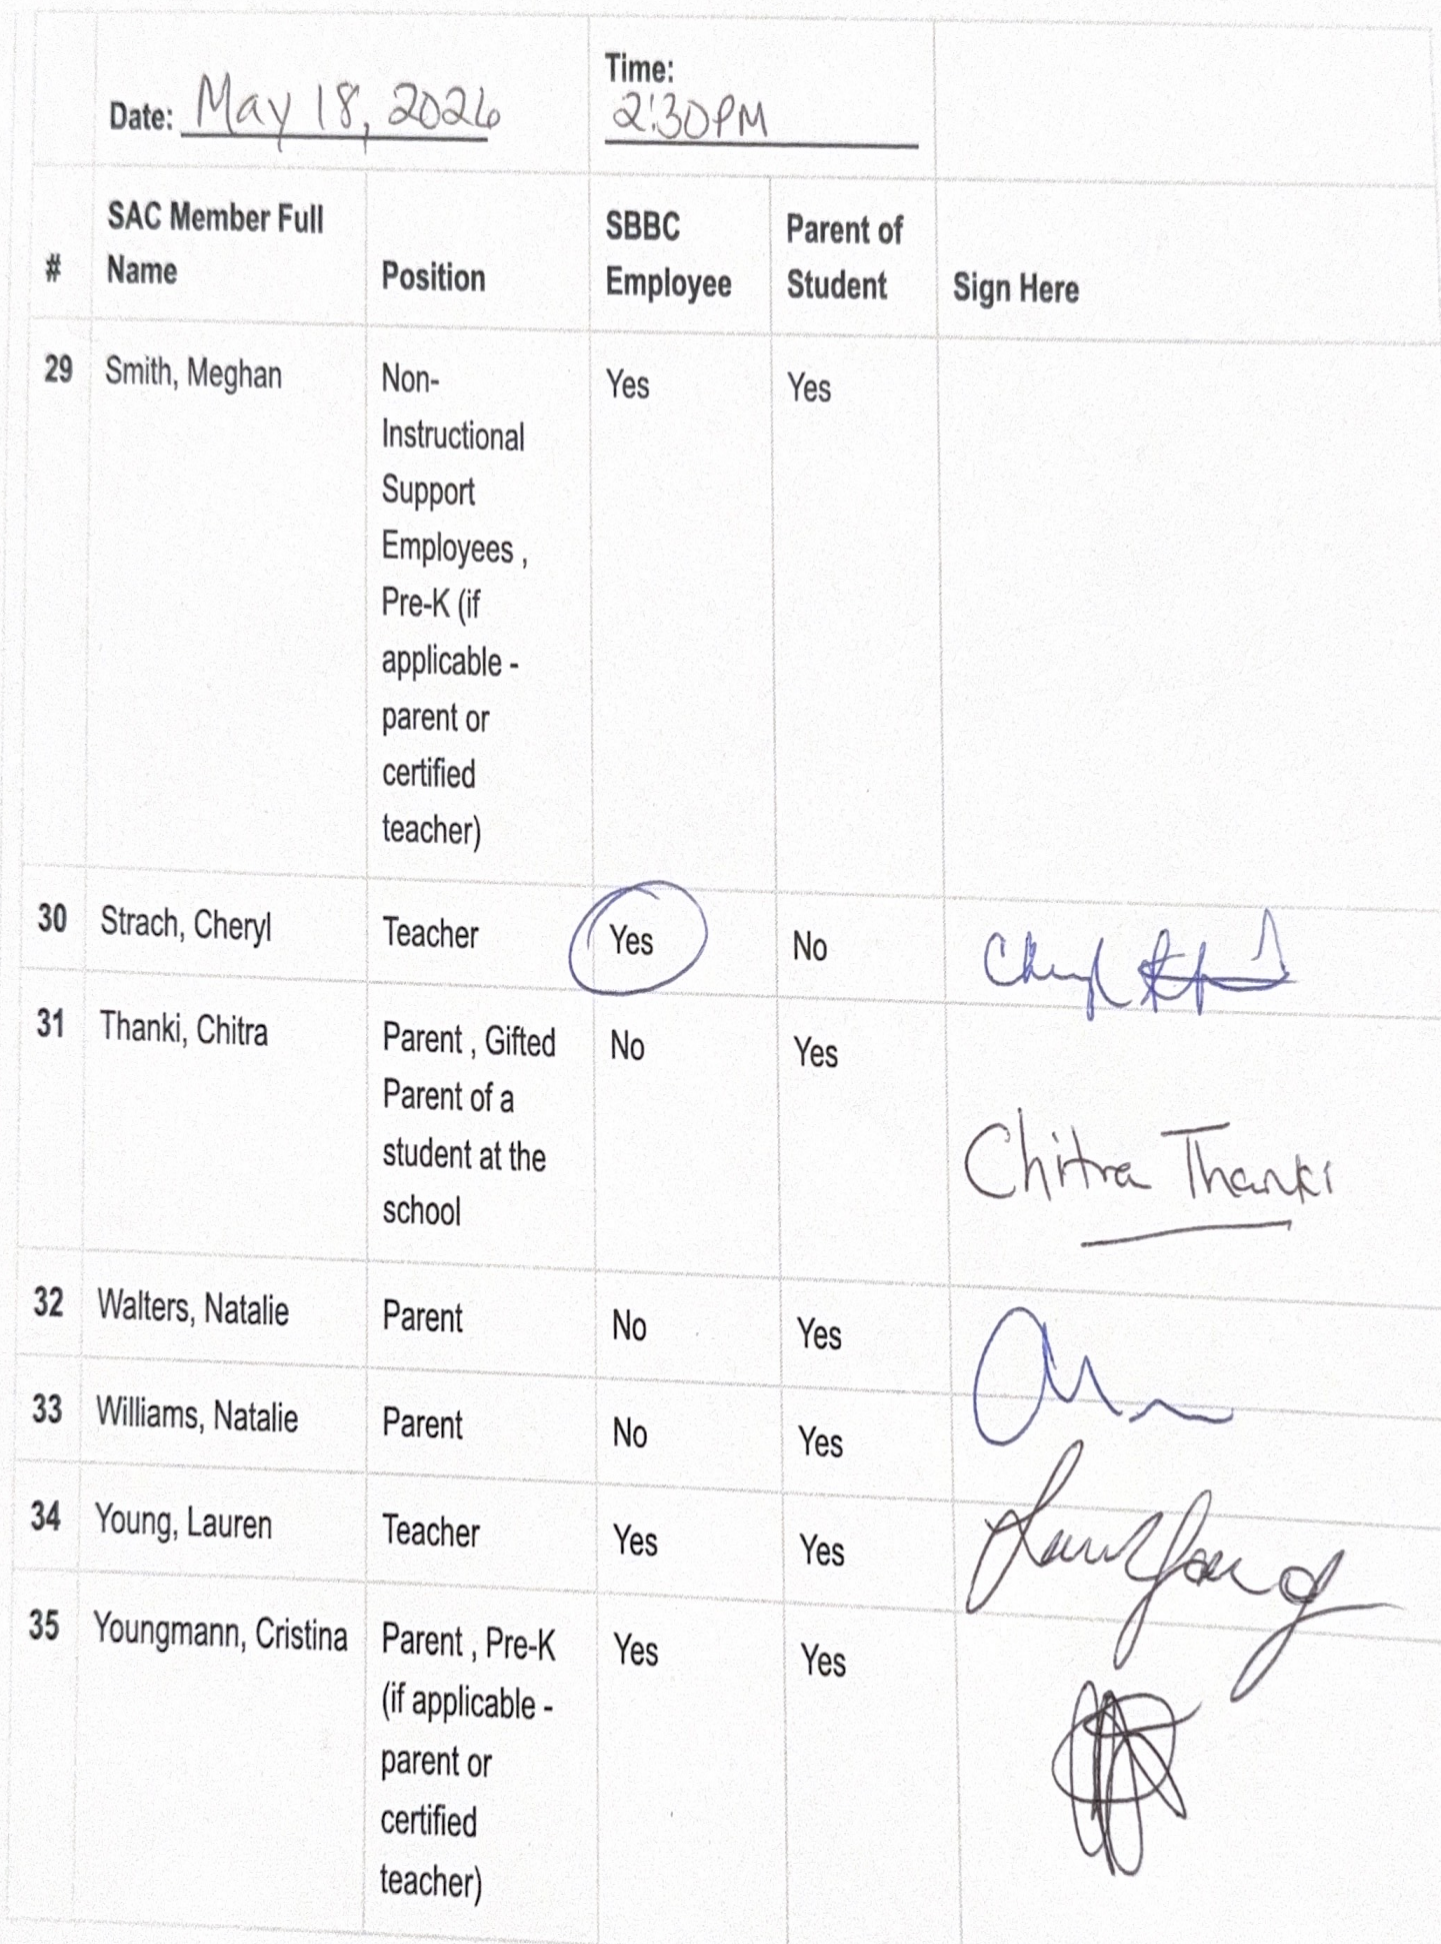 Date: May 18, 2026
Time:
2:30PM
#
SAC Member Full
Name
Position
SBBC
Employee
Parent of
Student
Sign Here
29 Smith, Meghan
Non-
Instructional
Support
Employees ,
Pre-K (if
applicable -
parent or
certified
teacher)
Yes
Yes
30 Strach, Cheryl
Teacher
Yes
No
Cheryl
31 Thanki, Chitra
Parent , Gifted
Parent of a
student at the
school
No
Yes
Chitra Thanki
32 Walters, Natalie
Parent
No
Yes
33 Williams, Natalie
Parent
No
Yes
34 Young, Lauren
Teacher
Yes
Yes
35 Youngmann, Cristina
Parent , Pre-K
(if applicable -
parent or
certified
teacher)
Yes
Yes